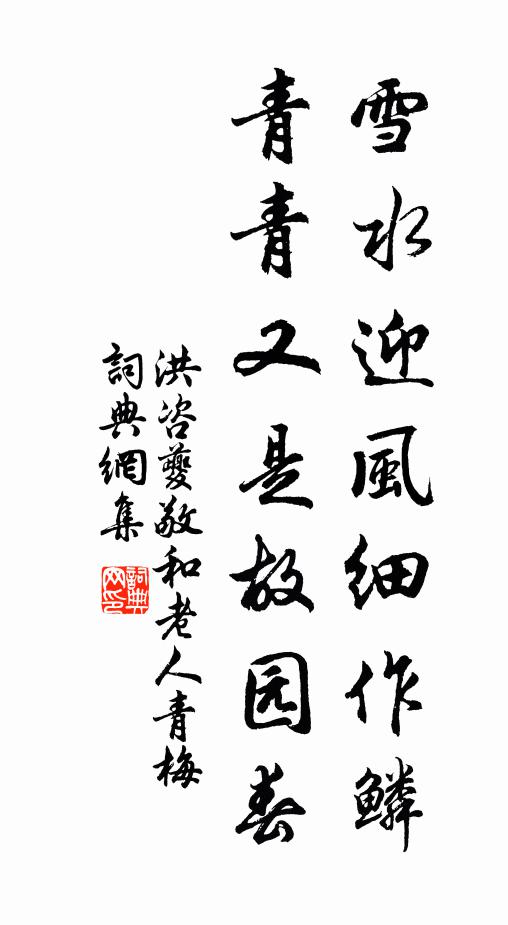 雪水迎風細作鱗
青青又是故园春
洪咨夔敬和老人青梅
詞典網集
詞典網印